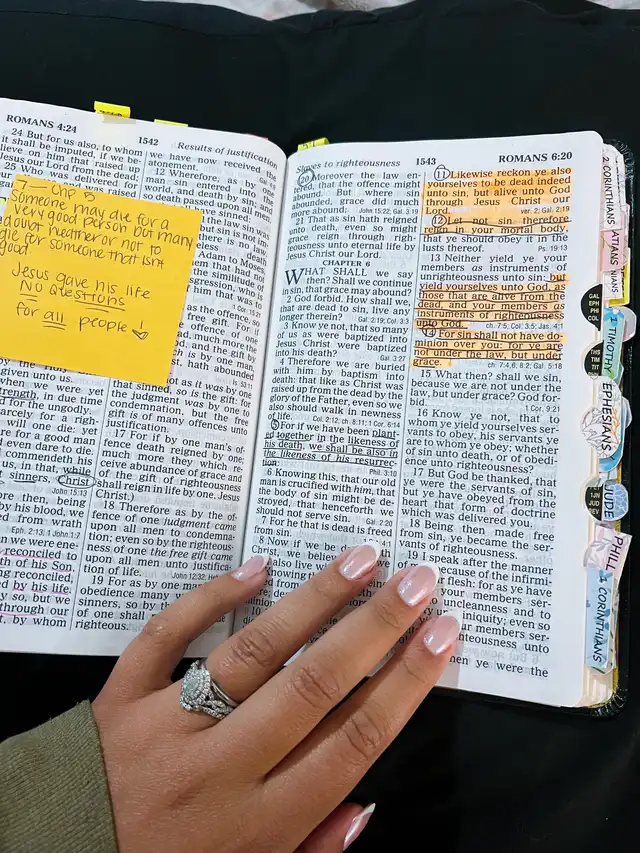 ROMANS 4:24
1542
Results of justification
24 But for us also, to whom
it shall be imputed, if we be-
lieve on him that raised up
Jesus our Lord from the dead;
25 Who was delivered for
7 - Chp 5
Someone may die for a
very good person but many
doubt neather or not to
die for someone that isnt
good
Jesus gave his life
NO QUESTIONS
for all people
given unto us.
when we were yet
strength, in due time
d for the ungodly.
arcely for a righ-
will one die: yet
re for a good man
d even dare to die.
commendeth his
us, in that, while
sinners, Christ
John 15:13
ore then, being
by his blood, we
d from wrath
Eph. 2:13; 1 John 1:7
n we were ene-
reconciled to
th of his Son,
ng reconciled,
by his life.
y so, but we
through our
t, by whom
we have now received the
atonement.
12 Wherefore, as by one
man sin entered into the
world, and death by sin; and
so death passed upon all men,
have sinned:
the law sin was
but sin is not im-
there is no law.
less death
Adam to Moses,
them that had not
the similitude of
gression, who is
him that was to
as the offence, so
gift. For if
offence of one
d, much more the
and the gift by
ch is by one man,
hath abounded
not as it was by one
the judgment was by one
condemnation, but the free
gift is of many offences unto
justification.
17 For if by one man's of-
fence death reigned by one;
much more they which re-
ceive abundance of grace and
of the gift of righteousness
shall reign in life by one, Jesus
Christ.)
18 Therefore as by the of-
fence of one judgment came
upon all men to condemna-
tion; even so by the righteous-
ness of one the free gift came
upon all men unto justifica-
tion of life.
John 12:32
19 For as by one man's
obedience many were
sinners, so by the
of one shall
righteous.
Slaves to righteousness
1543
ROMANS 6:20
20 Moreover the law en-
tered, that the offence might
abound. But where sin
abounded, grace did much
more abound:
John 15:22; Gal. 3:19
21 That as sin hath reigned
unto death, even so might
grace reign through righ-
teousness unto eternal life by
Jesus Christ our Lord.
CHAPTER 6
WHAT SHALL we say
then? Shall we continue
in sin, that grace may abound?
2 God forbid. How shall we,
that are dead to sin, live any
longer therein?
Gal. 2:19; Col. 3:3
3 Know ye not, that so many
of us as were baptized into
Jesus Christ were baptized
into his death?
Gal. 3:27
4 Therefore we are buried
with him by baptism into
death: that like as Christ was
raised up from the dead by the
glory of the Father, even so we
also should walk in newness
of life.
Col. 2:12; ch. 8:11; 1 Cor. 6:14
5 For if we have been plant-
ed together in the likeness of
his death, we shall be also in
the likeness of his resurrec-
tion:
Phil. 3:10
6 Knowing this, that our old
man is crucified with him, that
the body of sin might be de-
stroyed, that henceforth we
should not serve sin.
Gal. 2:20
7 For he that is dead is freed
from sin.
8 Now if we be dead
Christ, we believe
also live with
Knowing
from
11 Likewise reckon ye also
yourselves to be dead indeed
unto sin, but alive unto God
through Jesus Christ our
Lord.
ver. 2; Gal. 2:19
12 Let not sin therefore
reign in your mortal body,
that ye should obey it in the
lusts thereof.
Ps. 19:13
13 Neither yield ye your
members as instruments of
unrighteousness unto sin: but
yield yourselves unto God, as
those that are alive from the
dead, and your members as
instruments of righteousness
unto God.
ch. 7:5; Col. 3:5; Jas. 4:1
14 For sin shall not have do-
minion over you: for ye are
not under the law, but under
grace.
ch. 7:4,6; 8:2; Gal. 5:18
15 What then? shall we sin,
because we are not under the
law, but under grace? God for-
bid.
1 Cor. 9:21
16 Know ye not, that to
whom ye yield yourselves ser-
vants to obey, his servants ye
are to whom ye obey; whether
of sin unto death, or of obedi-
ence unto righteousness?
17 But God be thanked, that
ye were the servants of sin,
but ye have obeyed from the
heart that form of doctrine
which was delivered you.
18 Being then made free
from sin, ye became the ser-
vants of righteousness.
19 I speak after the manner
of men because of the infirmi-
ty of your flesh: for as ye have
your members ser-
to uncleanness and to
iniquity; even so
your members ser-
righteousness unto
when ye were the
2 CORINTHIANS
GAL
EPH
PHI
COL
TIMOTHY
THS
TIM
TIT
EPHESIANS
1JN
JUD
REV
JUDE
PHILL
CORINTHANS